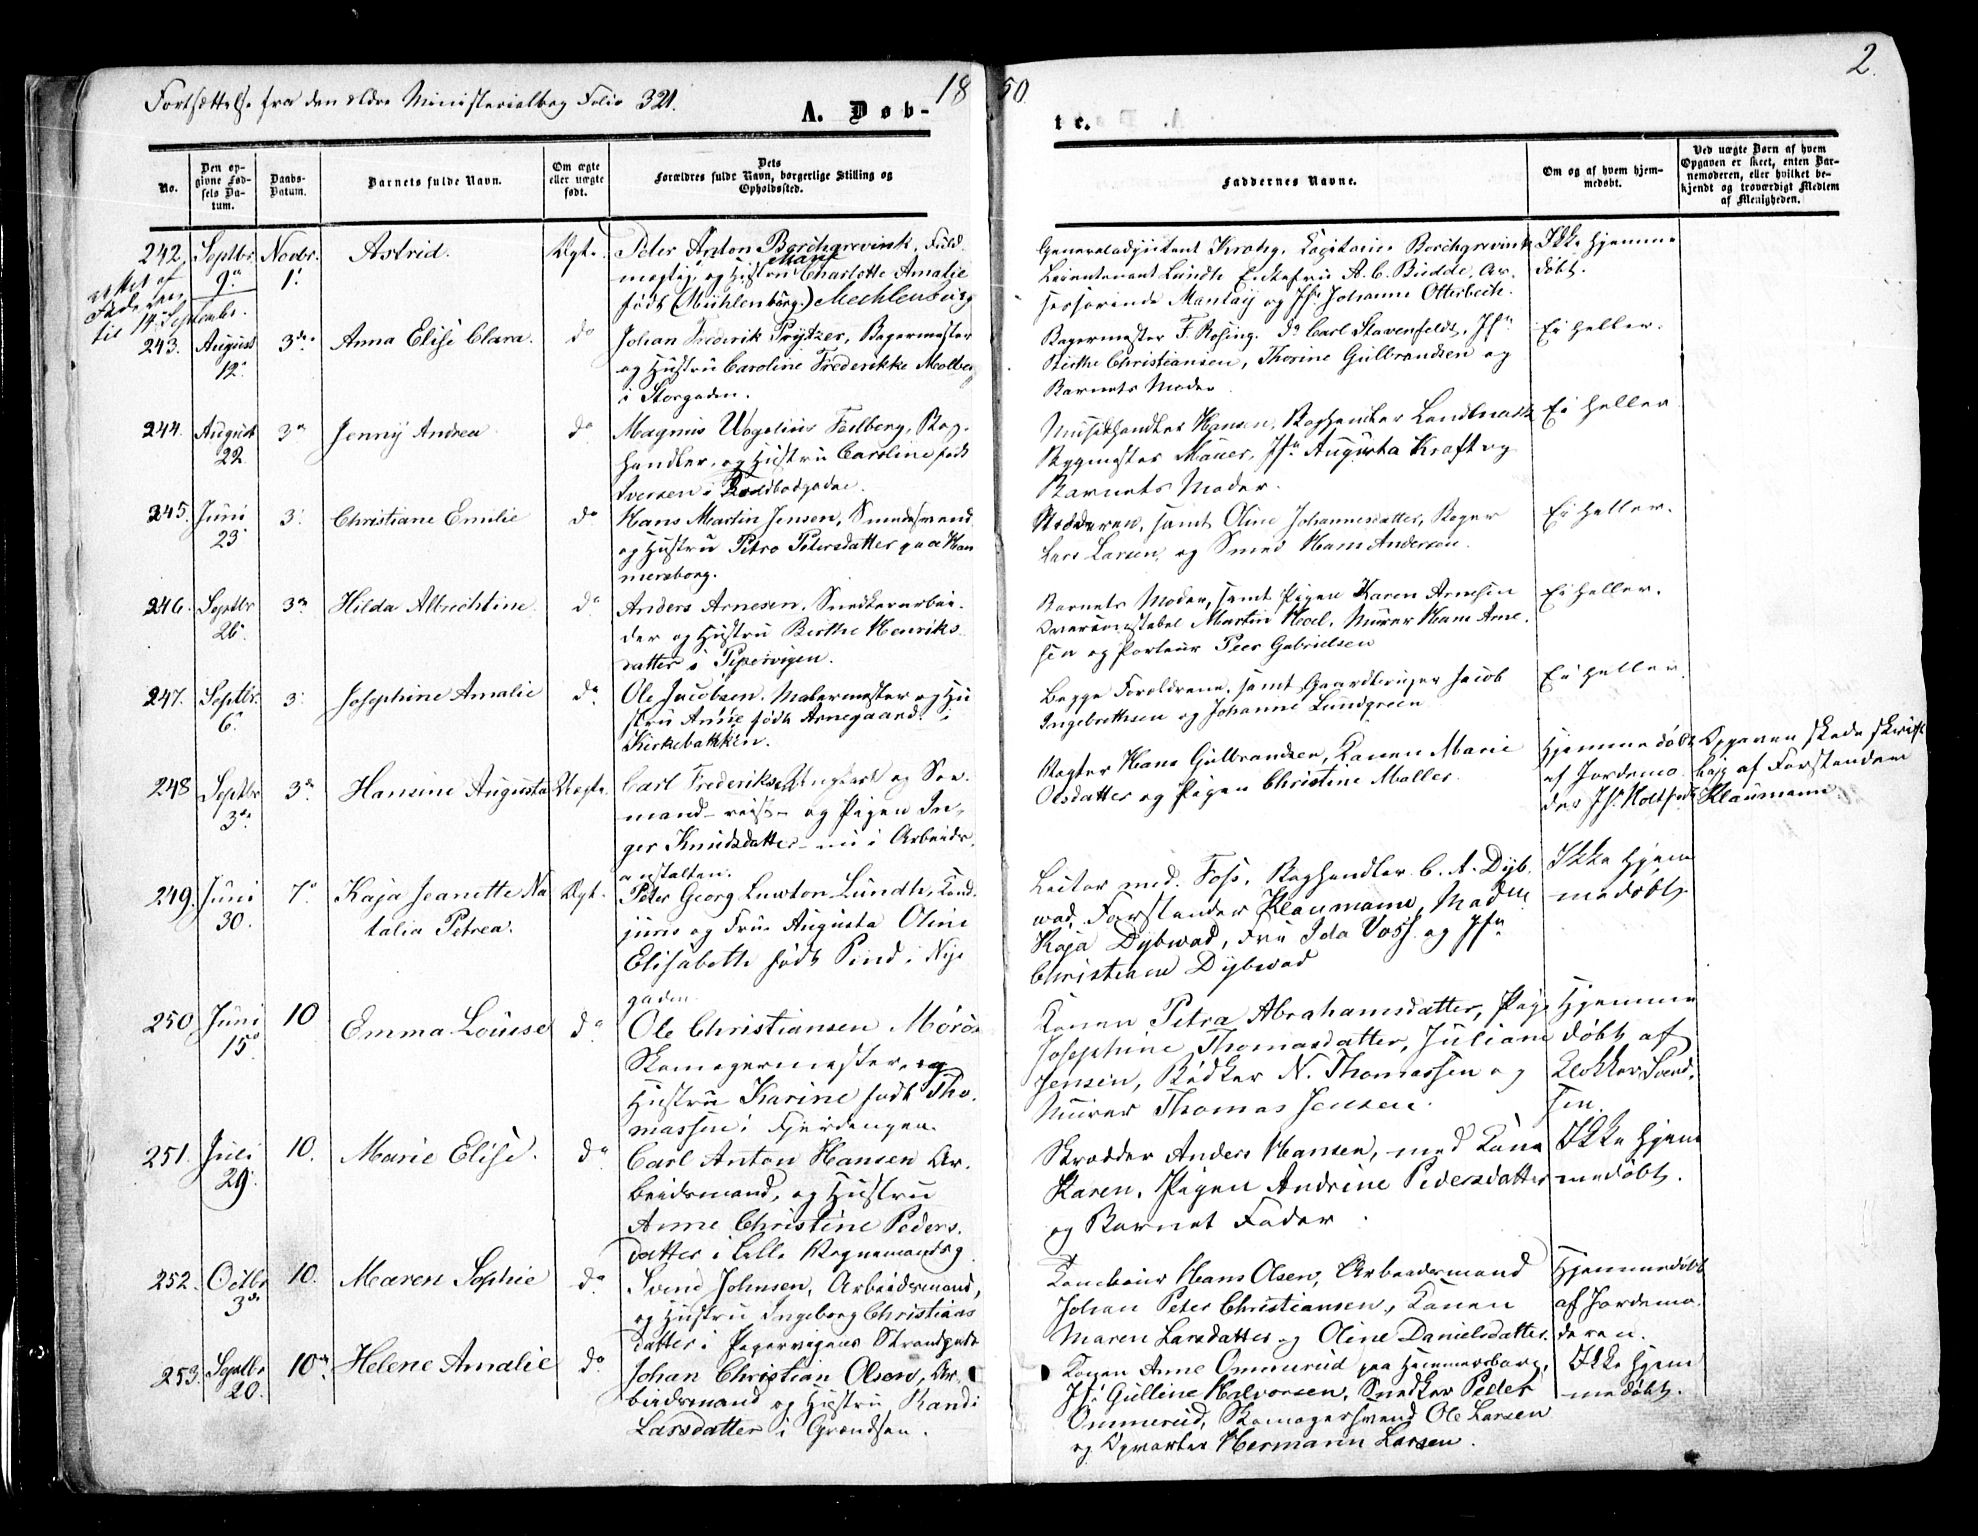 Fortsættelse fra den ældre Ministerialbog Folio 321.
1850
2.
A. Døb-
te.
No.
Den op-
givne Fød-
sels Da-
tum.
Daabs-
Datum.
Barnets fulde Navn.
Om ægte
eller uægte
født.
Dets
Forældres fulde Navn, borgerlige Stilling og
Opholdssted.
Faddernes Navne.
Om og af hvem hjem-
medøbt.
Ved uægte Børn af hvem
Opgaven er skeet, enten Bar-
nemoderen, eller hvilket be-
kjendt og troværdigt Medlem
af Menigheden.
242. Septbr. 9. Novbr. 1. Astrid. Ægte.
rettet af
Faderen
til 14 Septembr.
Peter Anton Borchgrevink, Fuld
mægtig, og Hustru Marie Charlotte Amalie
født (Mühlenborg.) Mechlenburg
Generaladjutant Krohg, Capitain Borchgrevink
Lieutenant Lundh Enkefru A. C. Budde,
Manthey og Jfr Johanne Otterbech.
Ikke hjemme
døbt.
243. August 12. 3die Anna Elise Clara. do
Johan Frederik Prytzer, Bagermester
og Hustru Caroline Frederikke Molberg
i Storgaden.
Bagermester F. Rosing. do Carl Stavenfeldt, Jfr
Birthe Christiansen, Thorine Gulbrandsen og
Barnets Moder
Ei heller.
244. August 22. 3die Jenny Andrea do
Magnus Vogelius Feilberg, Bog-
handler, og Hustru Caroline født
Iversen i Toldbodgaden.
Musikhandler Hansen, Boghandler
Bygmester Mauer, Jfr Augusta Kraft og
Barnets Moder.
Ei heller
245. Juni 23. 3. Christiane Emilie do
Hans Martin Jensen, Smedesvend
og Hustru Petra Petersdatter paa Ham
mersborg.
Moderen, samt Oline Johannesdatter, Bager
Lars Larsen, og Smed Hans Andersen.
Ei heller.
246. Septbr. 26. 3die Hilda Albrechtine. do
Anders Arnesen. Snedkerarbei-
der og Hustru Birthe Henriks
datter i Pipervigen.
Barnets Moder, samt Pigen Karen Arnesen
Overconstabel Martin Hoel, Murer Hans Arne-
sen og Porteur Peer Gabrielsen
Ei heller.
247. Septbr. 6. 3. Josephine Amalie do
Ole Jacobsen. Malermester og Hu
stru Anne født Arnegaard. i
Kirkebakken.
Begge Forældrene, samt Gaardbruger Jacob
Ingebrethsen og Johanne Lundgreen
Ei heller.
248 Septbr 3die 3die Hansine Augusta Uægte.
Carl Frederiksen Ungkarl og Søe-
mand – reist – og Pigen In-
ger Knudsdatter – nu i Arbeids
anstalten.
Vogter Hans Gulbrandsen, Konen Marie
Olsdatter og Pigen Christine Møller.
Hjemmedøbt
af Jordemo
der Jfr Holtfodt
Opgaven skede skrift
lig af Forstander
Klaumann.
249. Juni 30. 7. Kaja Jeanette Na
talia Petrea. Ægt.
Peter Georg Luxton Lundh, Cand.
juris og Frue Augusta Oline
Elisabeth født Pind i Nye
gaden.
Foss, Boghandler C. A. Dyb-
wad, Forstander Klaumann, Madm
Kaja Dybwad, Fru Ida Voss og Jfr
Christiane Dybwad
Ikke hjem
medøbt.
250. Juni 15. 10 Emma Louise do
Ole Christiansen Moröe
Skomagermester, og
Hustru Karine født Tho-
massen i Fjerdingen.
Konen Petra Abrahamsdatter, Pige
Josephine Thomasdatter, Juliane
Jensen, Bødker N. Thomassen og
Murer Thomas Jensen.
Hjemme
døbt af
Klokker Svend-
sen.
251. Juli 29. 10. Marie Elise. do
Carl Anton Hansen Ar-
beidsmand, og Hustru
Anne Christine Peders-
datter i Lille Vognmandsg
Skrædder Anders Hansen, med Kone
Karen, Pigen Andrine Pedersdatter
og Barnets Fader.
Ikke hjem
medøbt.
252. Octbr 3die 10. Maren Sophie do
Svend Johnsen, Arbeidsmand,
og Hustru Ingeborg Christians
datter i Pipervigens Strandgade
Hans Olsen, Arbeidsmand
Johan Peter Christiansen, Konen
Maren Larsdatter og Oline Danielsdatter.
Hjemmedøbt
af Jordemo-
deren.
253. Septbr 20. 10. Helene Amalie do
Johan Christian Olsen, Ar-
beidsmand og Hustru Randi
Larsdatter i Grændsen.
Konen Anne Ommerud paa Hammersborg,
Jfr Gulline Halvorsen, Snedker Peder
Ommerud, Skomagersvend Ole Larsen
og Opvarter Hermann Larsen.
Ikke hjem
medøbt.